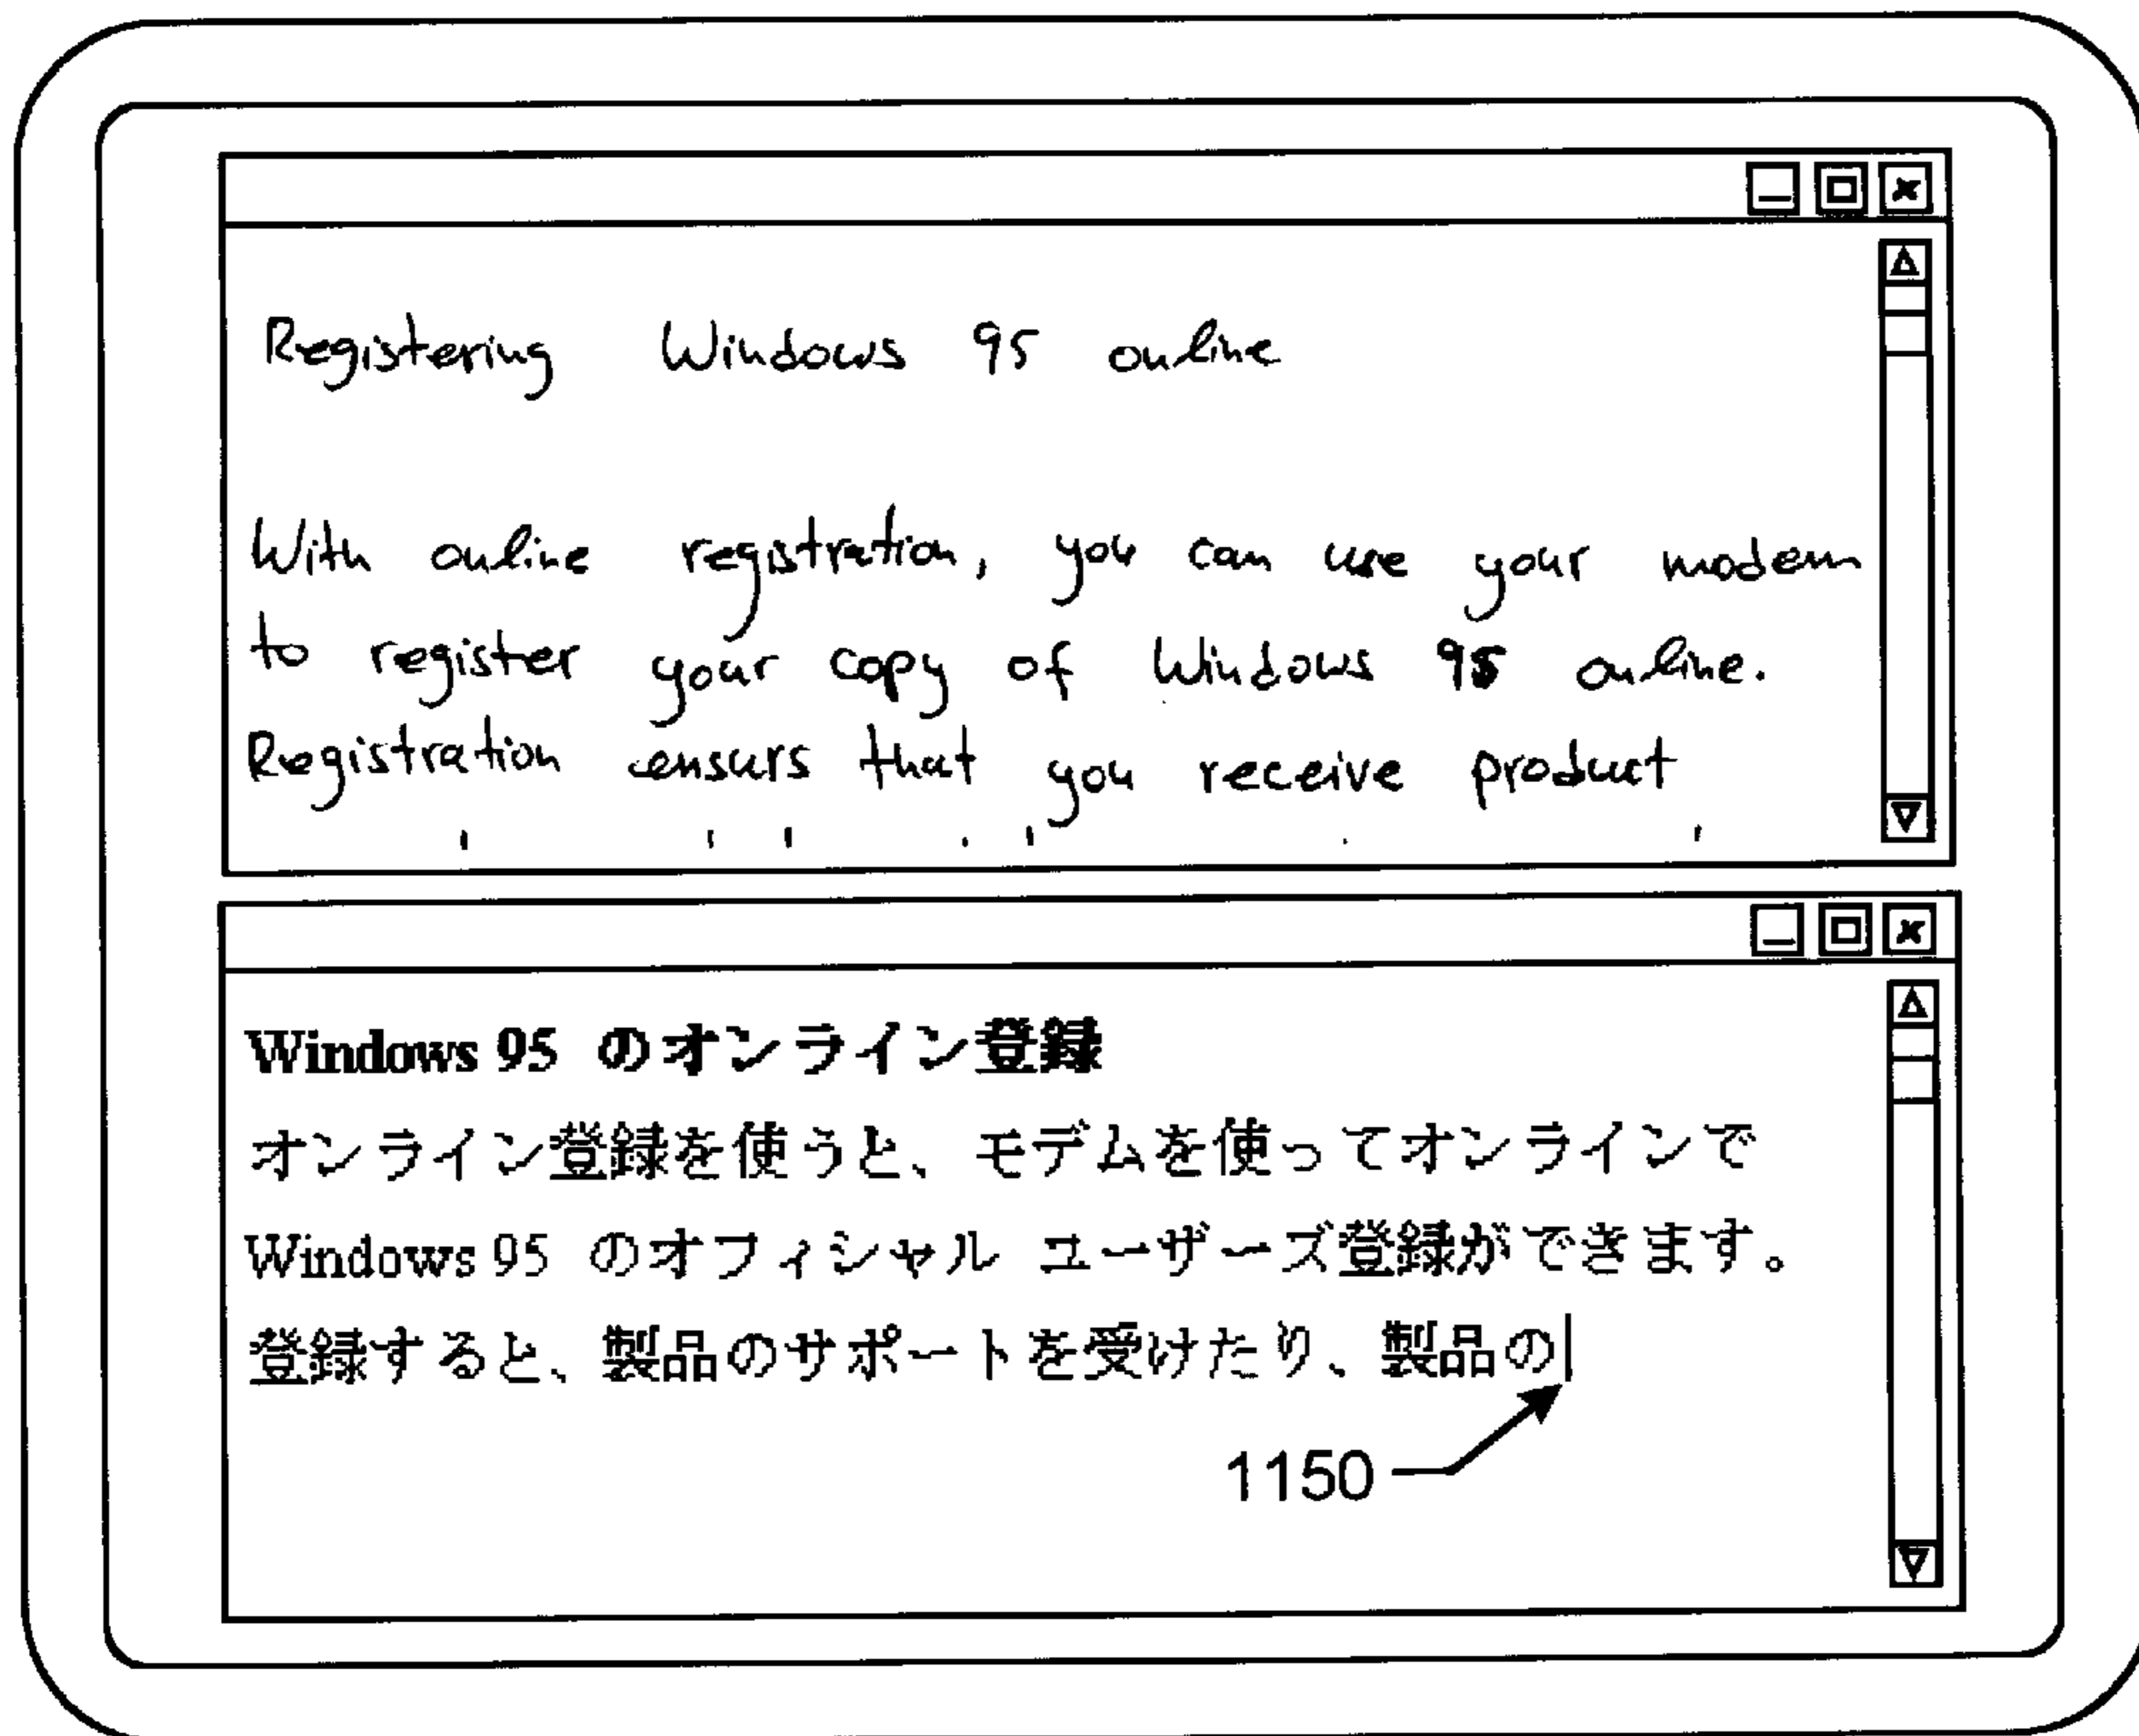 Registering Windows 95 online
With online registration, you can use your modem
to register your copy of Windows 95 online.
Registration ensurs that you receive product
Windows 95 のオンライン登録
オンライン登録を使うと、モデムを使ってオンラインで
Windows 95 のオフィシャル ユーザーズ登録ができます。
登録すると、製品のサポートを受けたり、製品の
1150